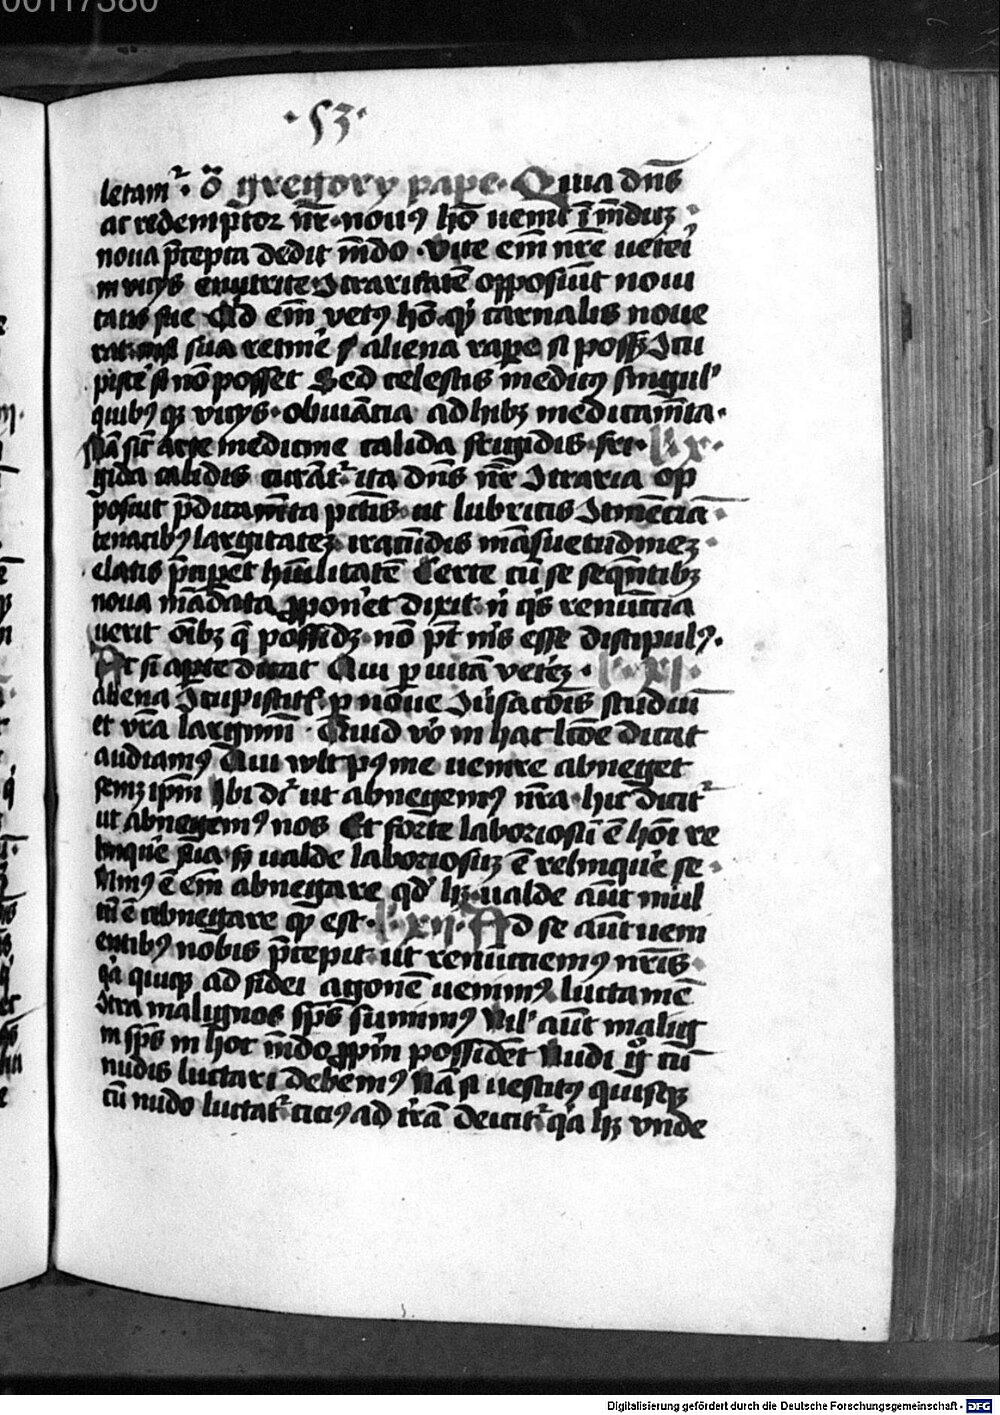 00117380
· 53 ·
letamr · ō gregory pape · Quia dn̄s
ac redemptor nr̄ · nouꝰ hō uenit ī mūduꝫ ·
noua p̄cepta dedit mūdo · Vite em̄ nr̄e ueteri
in vicijs enutrite ꝯtrarietatē opposuit noui
tatis sue Qid em̄ vetꝰ hō · qͣꝫ carnalis noue
rat nisi sua retinē aliena rape si possꝫ ꝯcu
piscē si nō posset Sed celestis medicꝰ singul'
quibꝰqꝫ vicijs · obuiātia adhibꝫ medicamīa ·
Nā sic̄ arte medicine calida frigidis · fri · l · x ·
gida calidis curātr ita dn̄s nr̄ ꝯtraria op
posuit p̄dicamēta pctīs · ut lubricis ꝯtinēciā ·
tenacibꝰ largitateꝫ iracūdis māsuetudineꝫ ·
elatis p̄cip̄et huīlitatē Certe cū se seqn̄tibꝫ
noua mādata ꝓponēt dixit · nͥ qͥs renūcia
uerit oībꝫ q̄ possidꝫ · nō pt̄ mꝰs esse discipulꝰ ·
Ac si apte dicat Qui p uitā veterēꝫ · l · xi ·
aliena ꝯcupiscitꝭ p noue ꝯuersacōis studiū
et vr̄a largimī · Quid vͦo in hac lcōe dicat
audiamꝰ Qui vult pꝰ me uenire abneget
semꝫ ipm̄ Ibi dr̄ ut abnegemꝰ nr̄a · hic dicitr
ut abnegemꝰ nos Et forte laboriosū ē hōi re
linquē sua · sꝫ ualde laboriosuꝫ ē relinquē se ·
Minꝰ ē em̄ abnegare qd' hꝫ · ualde aūt mul
tū ē abnegare qͣꝫ est · l · xij · Ad se aūt ueni
entibꝰ nobis p̄cepit · ut renūciemꝰ nr̄is ·
qͣ quiqꝫ ad fidei agonē uenimꝰ luctamē
ꝯtra malignos sp̄s sumimꝰ Nil' aūt malig
ni sp̄s in hoc mūdo ꝓpm̄ possidēt Nudi gͦ cū
nudis luctari debemꝰ Nā si uestitꝰ quisqꝫ
cū nudo luctatr citiꝰ ad trā deicitr qͣ hꝫ vnde
Digitalisierung gefördert durch die Deutsche Forschungsgemeinschaft · DFG